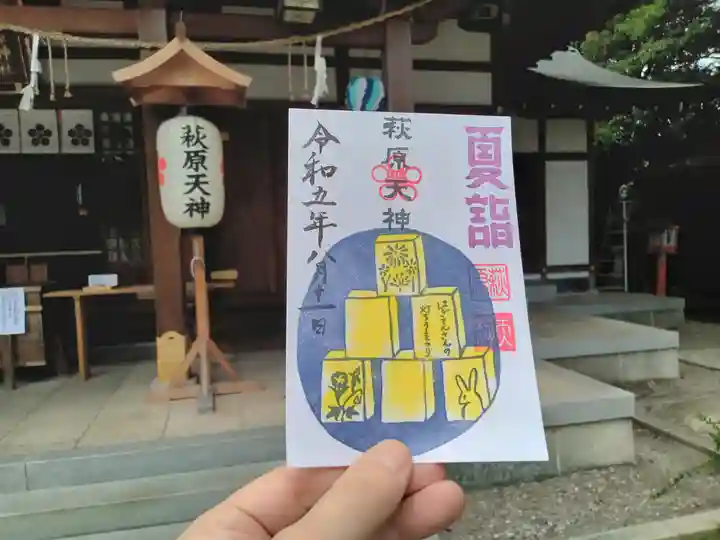 萩原天神
夏詣
萩原天神
令和五年八月十一日
はぎさんの
灯ろうまつり